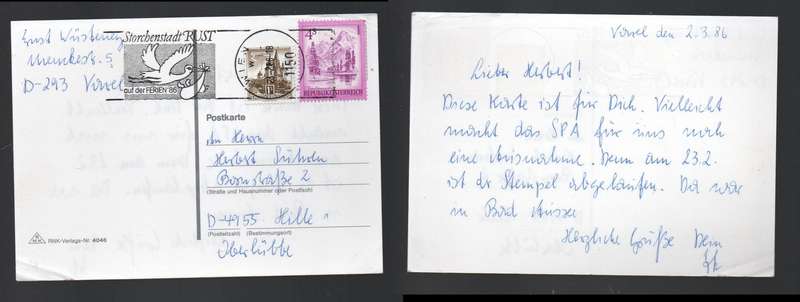 Ernst Wüsteney
Menckestr. 5
D-293 Varel
Storchenstadt RUST
auf der FERIEN '86
WIEN
1150
4 S
REPUBLIK ÖSTERREICH
Postkarte
An Herrn
Herbert
Bornstraße 2
(Straße und Hausnummer oder Postfach)
D-4955 Hille 11
(Postleitzahl) (Bestimmungsort)
Oberlübbe
RNK
RNK-Verlags-Nr. 4046
Varel den 2.3.86
Lieber Herbert!
Diese Karte ist für Dich. Vielleicht
macht das SPA für uns noch
eine Ausnahme. Denn am 23.2.
ist der Stempel abgelaufen. Da war
in Bad Aussee
Herzliche Grüße Dein